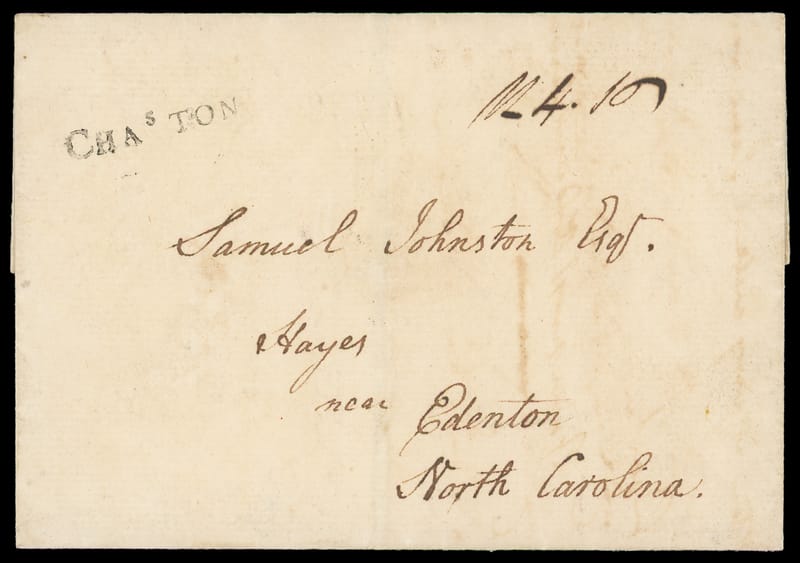 CHAS TON
4.16
Samuel Johnston Esqr.
Hayes
near Edenton
North Carolina.